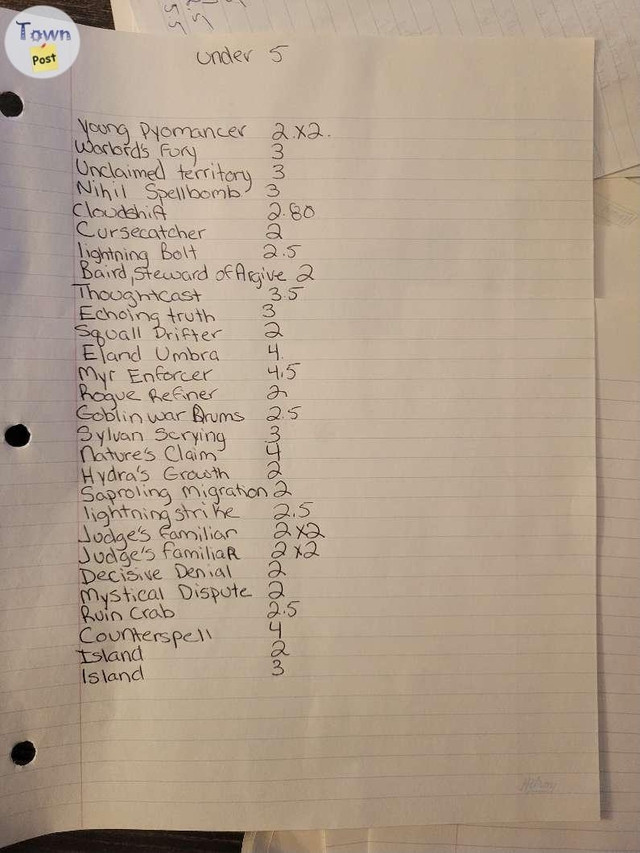 Town
Post
under 5
Young Pyomancer 2 x2.
Warlord's Fury 3
Unclaimed territory 3
Nihil Spellbomb 3
Cloudshift 2.80
Cursecatcher 2
lightning Bolt 2.5
Baird, Steward of Argive 2
Thoughtcast 3.5
Echoing truth 3
Squall Drifter 2
Eland Umbra 4.
Myr Enforcer 4.5
Rogue Refiner 2
Goblin war Drums 2.5
Sylvan Scrying 3
Nature's Claim 4
Hydra's Growth 2
Saproling Migration 2
lightning strike 2.5
Judge's familiar 2 x2
Judge's familiaR 2 x2
Decisive Denial 2
Mystical Dispute 2
Ruin Crab 2.5
Counterspell 4
Island 2
Island 3